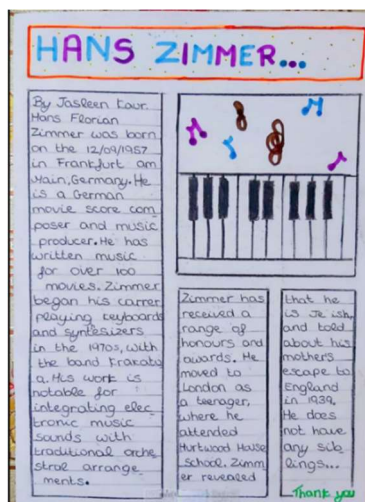 HANS ZIMMER...
By Jasleen Kaur.
Hans Florian
Zimmer was born
on the 12/09/1957
in Frankfurt am
Main, Germany. He
is a German
movie score com
poser and music
producer. He has
written music
for over 100
movies. Zimmer
began his carrer
playing keyboards
and syntesizers
in the 1970s, with
the band Krakato
a. His work is
notable for
integrating elec
tronic music
sounds with
traditional orche
stral arrange
ments.
Zimmer has
received a
range of
honours and
awards. He
moved to
London as
a teenager,
where he
attended
Hurtwood House
school. Zimm
er revealed
that he
is Je ish,
and told
about his
mother's
escape to
England
in 1939.
He does
not have
any sib
lings...
Thank you